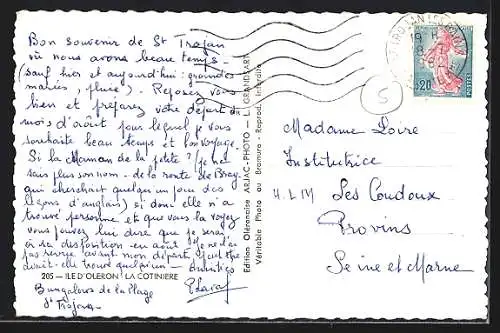 Bon souvenir de St Trojan
où nous avons beau temps
(sauf hier et aujourd'hui : grandes
marées, pluie). Reposez vous
bien et préparez votre départ du
mois d'août pour lequel je vous
souhaite beau temps et bon voyage.
Si la Maman de la petite ? je ne
sais plus son nom - de la route de Bray
qui cherchait quelqu'un pour des
leçons d'anglais) si donc elle n'a
trouvé personne et que vous la voyez
vous pouvez lui dire que je serai
à sa disposition en août. Je ne l'ai
pas revue avant mon départ, peut être
avait-elle trouvé quelqu'un - Amitiés
205 - ILE D'OLERON : LA COTINIERE
Bungalows de la Plage
St Trojan
Edition Oléronaise ARJAC-PHOTO - L. GRANDSART
Véritable Photo au Bromure - Reprod. Interdite
0,20
5
Madame Loire
Institutrice
H.L.M Les Coudoux
Provins
Seine et Marne